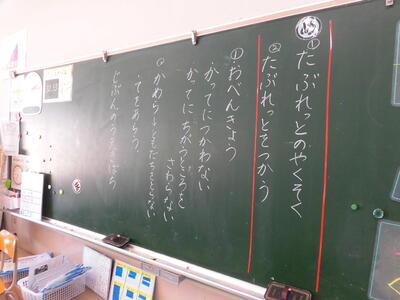 め
①たぶれっとのやくそく
②たぶれっとをつかう
①おべんきょう
・かってにつかわない
・かってにちがうところを
さわらない
・かめら→ともだちをとらない
・てをあらう。
じぶんの